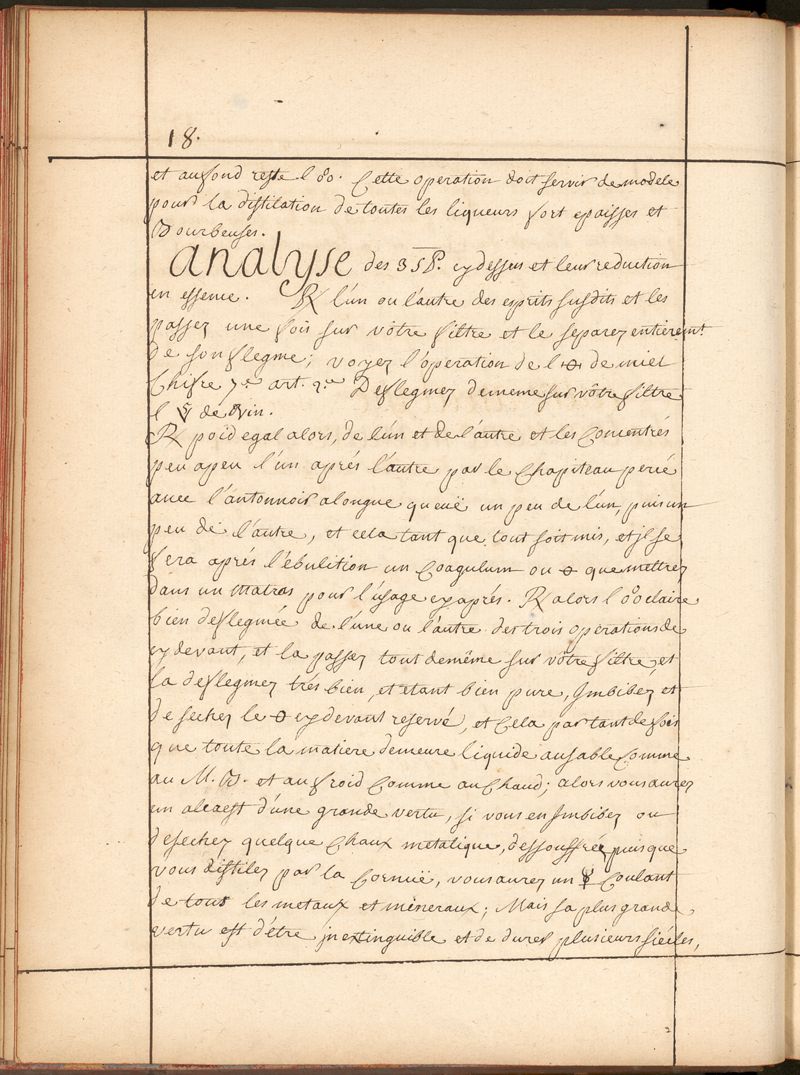 18.
et au fond reste l'8o. Cette operation doit servir de modele
pour la distilation de toutes les liqueurs fort epaisses et
Bourbeuses.
analyse des 3 cy dessus et leur reduction
en essence. ℞ l'un ou l'autre des esprits susdits et les
passez une fois sur vôtre filtre et le separez entierem.t
de son flegme; voyez l'operation de l' de miel
Chifre 7.e art. 2.e Deflegmez de meme sur vôtre filtre
l' de vin.
℞ poid egal alors, de l'un et de l'autre et les Concentrés
peu apeu l'un aprés l'autre par le Chapiteau percé
avec l'antonnoir alongue queuë un peu de l'un, puis un
peu de l'autre, et cela tant que tout soit mis, et jl se
fera aprés l'ébulition un Coagulum ou 🜔 que mettrez
dans un matras pour l'usage cy aprés. ℞ alors l' claire
bien deflegmée de l'une ou l'autre des trois operations de
cy devant, et la passez tout demême sur vôtre filtre, et
la deflegmez trés bien, et etant bien pure, Jmbibez et
desechez le 🜔 cy devant reservé, et Cela par tant de fois
que toute la matiere demeure liquide au sable Comme
au M. B. et au froid Comme au Chaud; alors vous aurez
un alcaest d'une grande vertu, si vous en Jmbibez ou
desechez quelque Chaux metalique, dessouffrée, puis que
vous distilez par la Cornuë, vous aurez un ☿ Coulant
de tous les metaux et mineraux; Mais sa plus grande
vertu est d'étre jnextinguible et de durer plusieurs siécles,